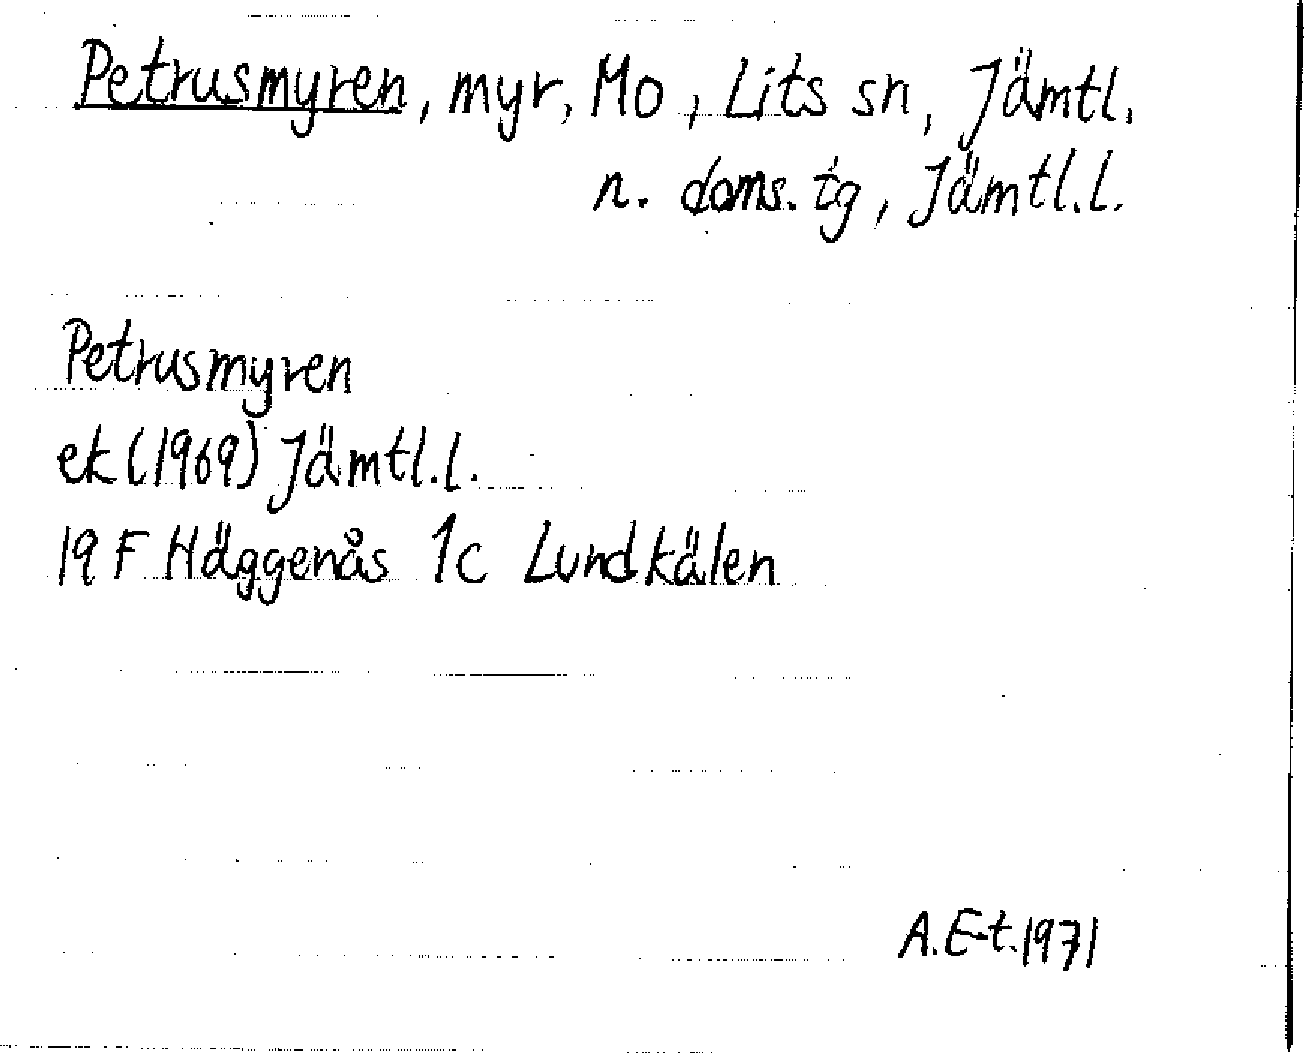 Petrusmyren, myr, Mo, Lits sn, Jämtl.
n. doms. tg, Jämtl.l.
Petrusmyren
ek (1969) Jämtl.l.
19 F Häggenås 1c Lundkälen
A.E-t.1971